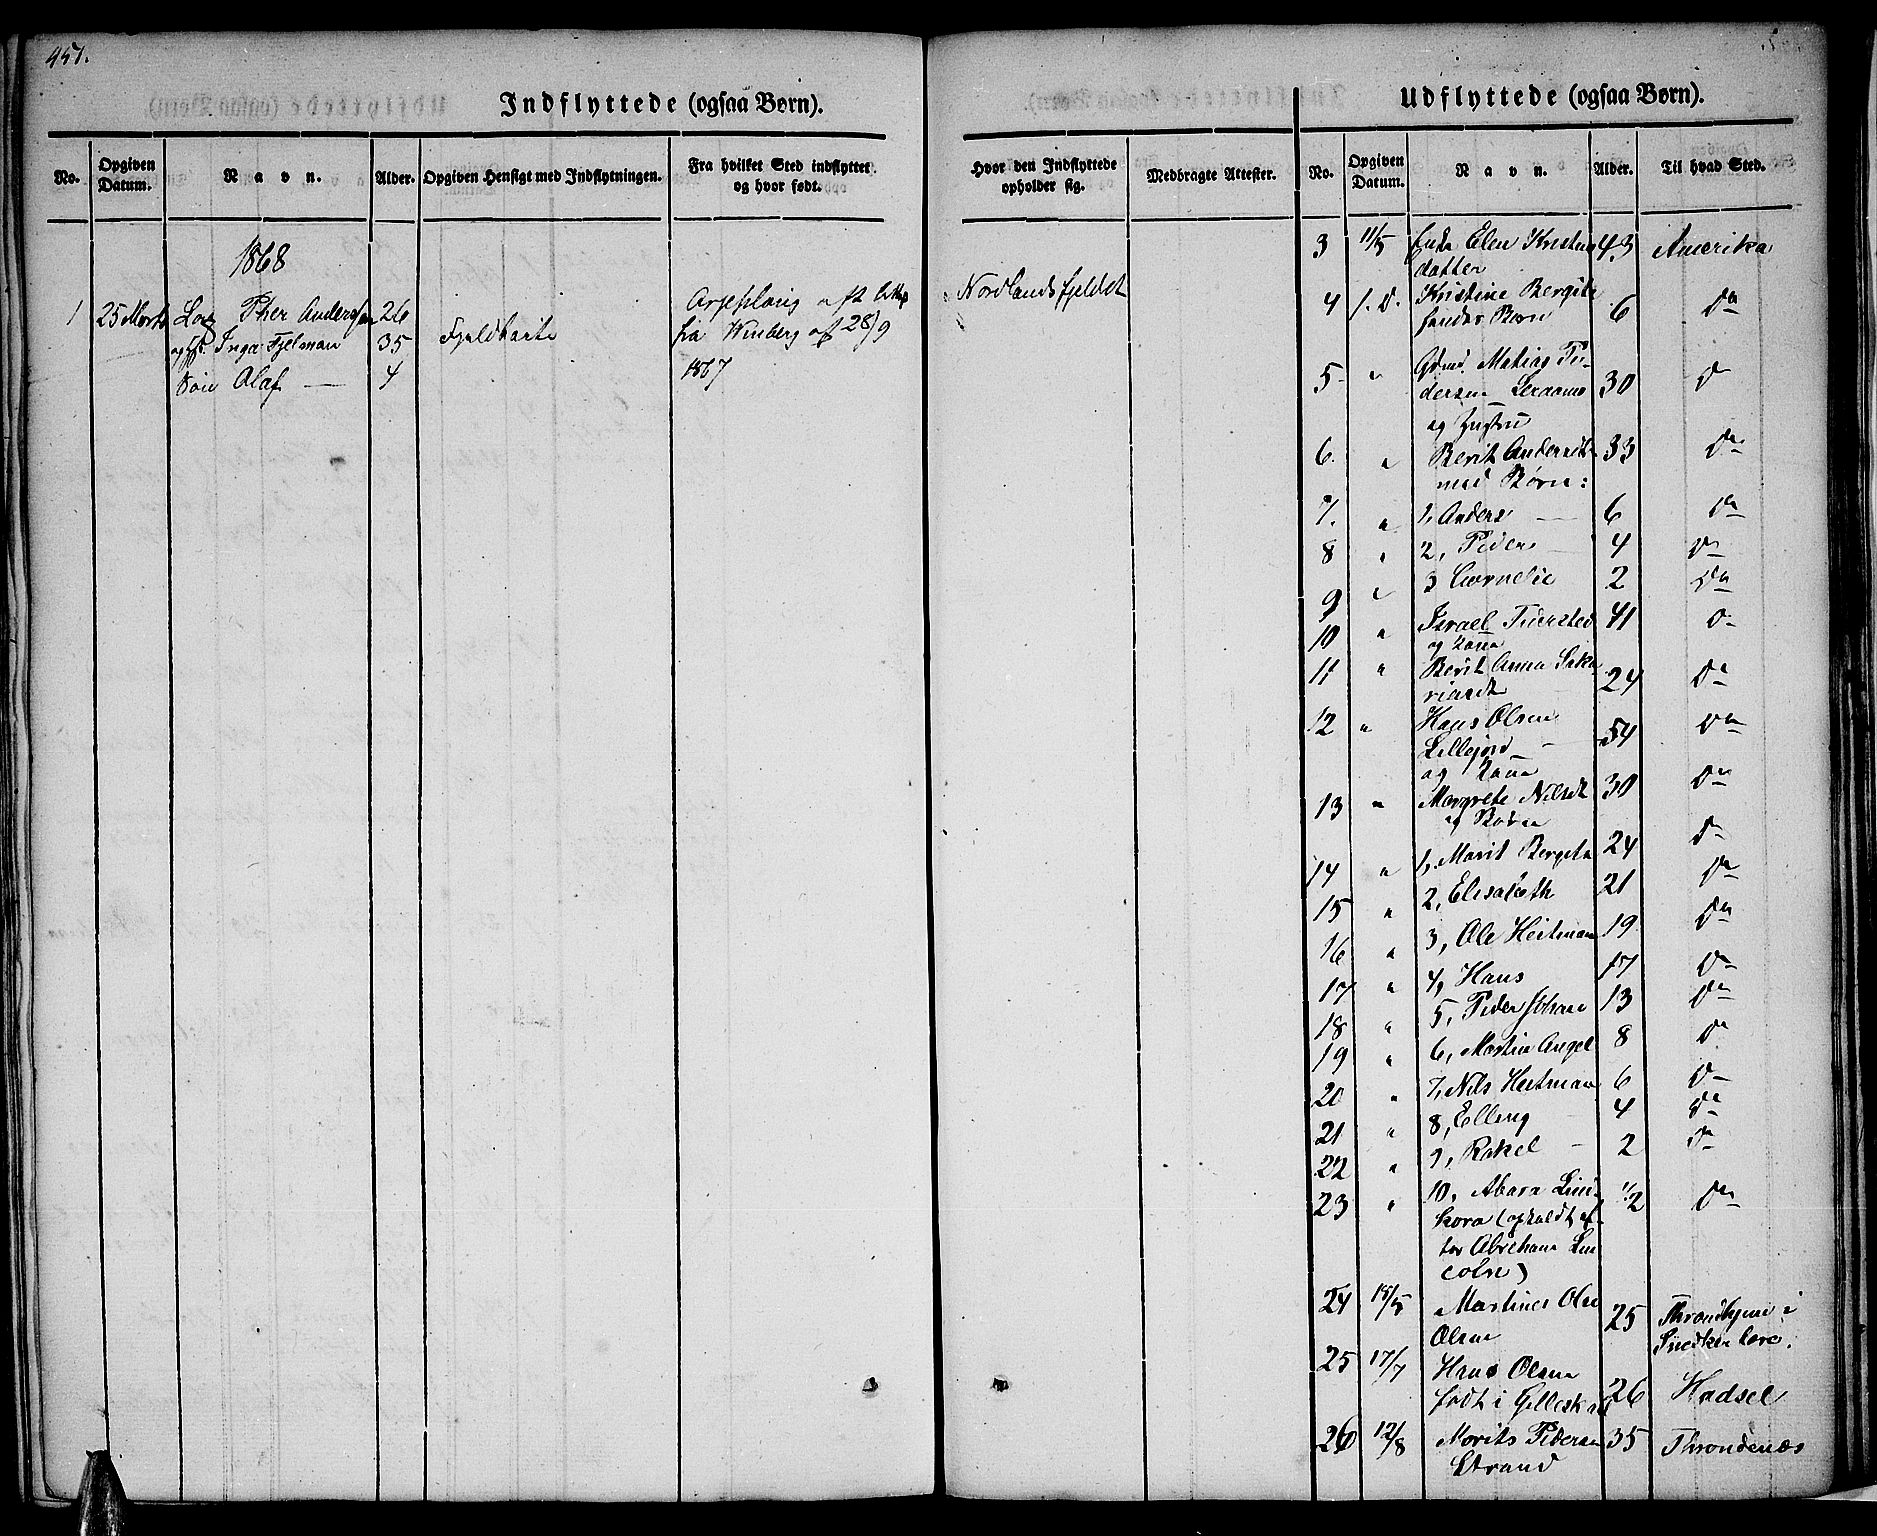 457.
Indflyttede (ogsaa Børn).
No. Opgiven Datum. Navn. Alder. Opgiven Hensigt med Indflytningen. Fra hvilket Sted indflyttet og hvor født.
1868
1 25 Marts Lap Pher Andersen 26 Arjeploug
og Inga Fjelman 35 Fjeldkarte fra Winberg af 28/9
Søn Olaf — 4 1867
Hvor den Indflyttede opholder sig. Medbragte Attester.
Nordlandsfjeldet
Udflyttede (ogsaa Børn).
No. Opgiven Datum. Navn. Alder. Til hvad Sted.
3 11/5 Enke Elen Kristina 43 Amerika
datter
4 s. D. Kristine Bergite 6 Do
hendes Børn
5 " Gdmd. Matias Pe- 30 Do
dersen
og Hustru
6. " Berit Andersdt 33 Do
med Børn:
7. " 1, Anders — 6 Do
8 " 2, Peder 4 Do
9 " 3 Cornelie 2 Do
10 " Israel Pedersen 41 Do
og Kone
11 " Berit Anna Saka 24 Do
riasdt
12 " Hans Olsen 54 Do
Lillejord —
og Kone
13 " Margrete Nilsdt 30 Do
og Børn
14 " 1, Marit Bergita 24 Do
15 " 2, Elisabeth 21 Do
16 " 3, Ole Heitman 19 Do
17 " 4, Hans 17 Do
18 " 5, Peder Johan 13 Do
19 " 6, Martin Angel 8 Do
20 " 7, Nils Heitman 6 Do
21 " 8, Elling 4 Do
22 " 9, Rakel — 2 Do
23 " 10, Abara Lin- 1/2 Do
kora (opkaldt ef-
ter Abraham Lin
coln)
24 15/5 Martines Ole 25 Throndhjem i
Olsen Snedker lære.
25 17/7 Hans Olsen
født i Gilleskaal 26 Hadsel
26 12/8 Morits Pedersen 35 Throndenæs
Strand